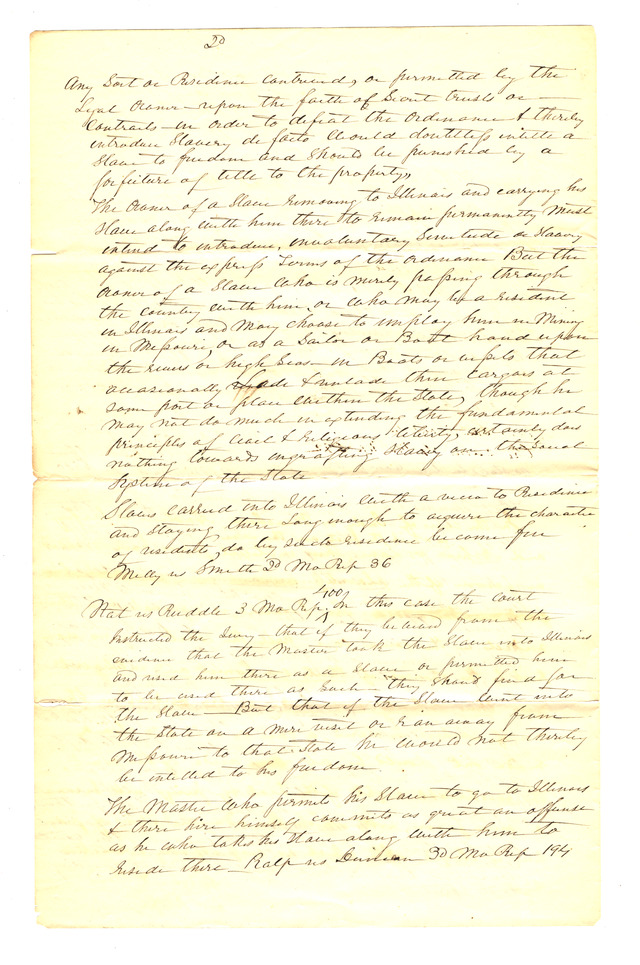 2d
Any Sort or Residence contrived, or permitted by the
Legal owner—upon the faith of Secret trusts or—
Contracts—in order to defeat the Ordinance & thereby
introduce Slavery de facto Would doubtless intitle a
Slave to freedom and Should be punished by a
forfeiture of title to the property,
The Owner of a Slave Removing to Illinois and carrying his
Slave along with him there to remain permanently Must
intend to introduce, involuntary Servitude or Slavery
against the express Terms of the Ordinance But the
owner of a Slave Who is merely passing through
the country with him, or Who may be a resident
in Illinois and may choose to imploy him in Mining
in Missouri, or as a Sailor or Boat hand upon
the rivers or high Seas—in Boats or vessels that
occasionally lade & unlade their cargoes at
some port or place within the State, though he
may not do much in extending the fundamental
principles of civil & Religious liberty, certainly does
nothing towards ingrafting Slavery on the Social
System of the State
Slaves carried into Illinois With a view to Residence
and Staying there Long enough to acquire the character
of residents, do by such residence become free
Milly vs Smith 2d Mo Rep 36
Nat vs Ruddle 3 Mo Rep, 400, In this case the court
Instructed the Jury—that if they believed from the
evidence that the Master took the Slave into Illinois
and used him there as a Slave or permitted him
to be used there as Such they should find for
the Slave—But that if the Slave went into
the State on a mere visit or ran away from
Missouri to that State he Would not thereby
be intitled to his freedom.
The Master Who permits his Slave to go to Illinois
& there hire himself commits as great an offense
as he who takes his Slave along With him to
reside there—Ralp vs Duncan 3d Mo Rep 194